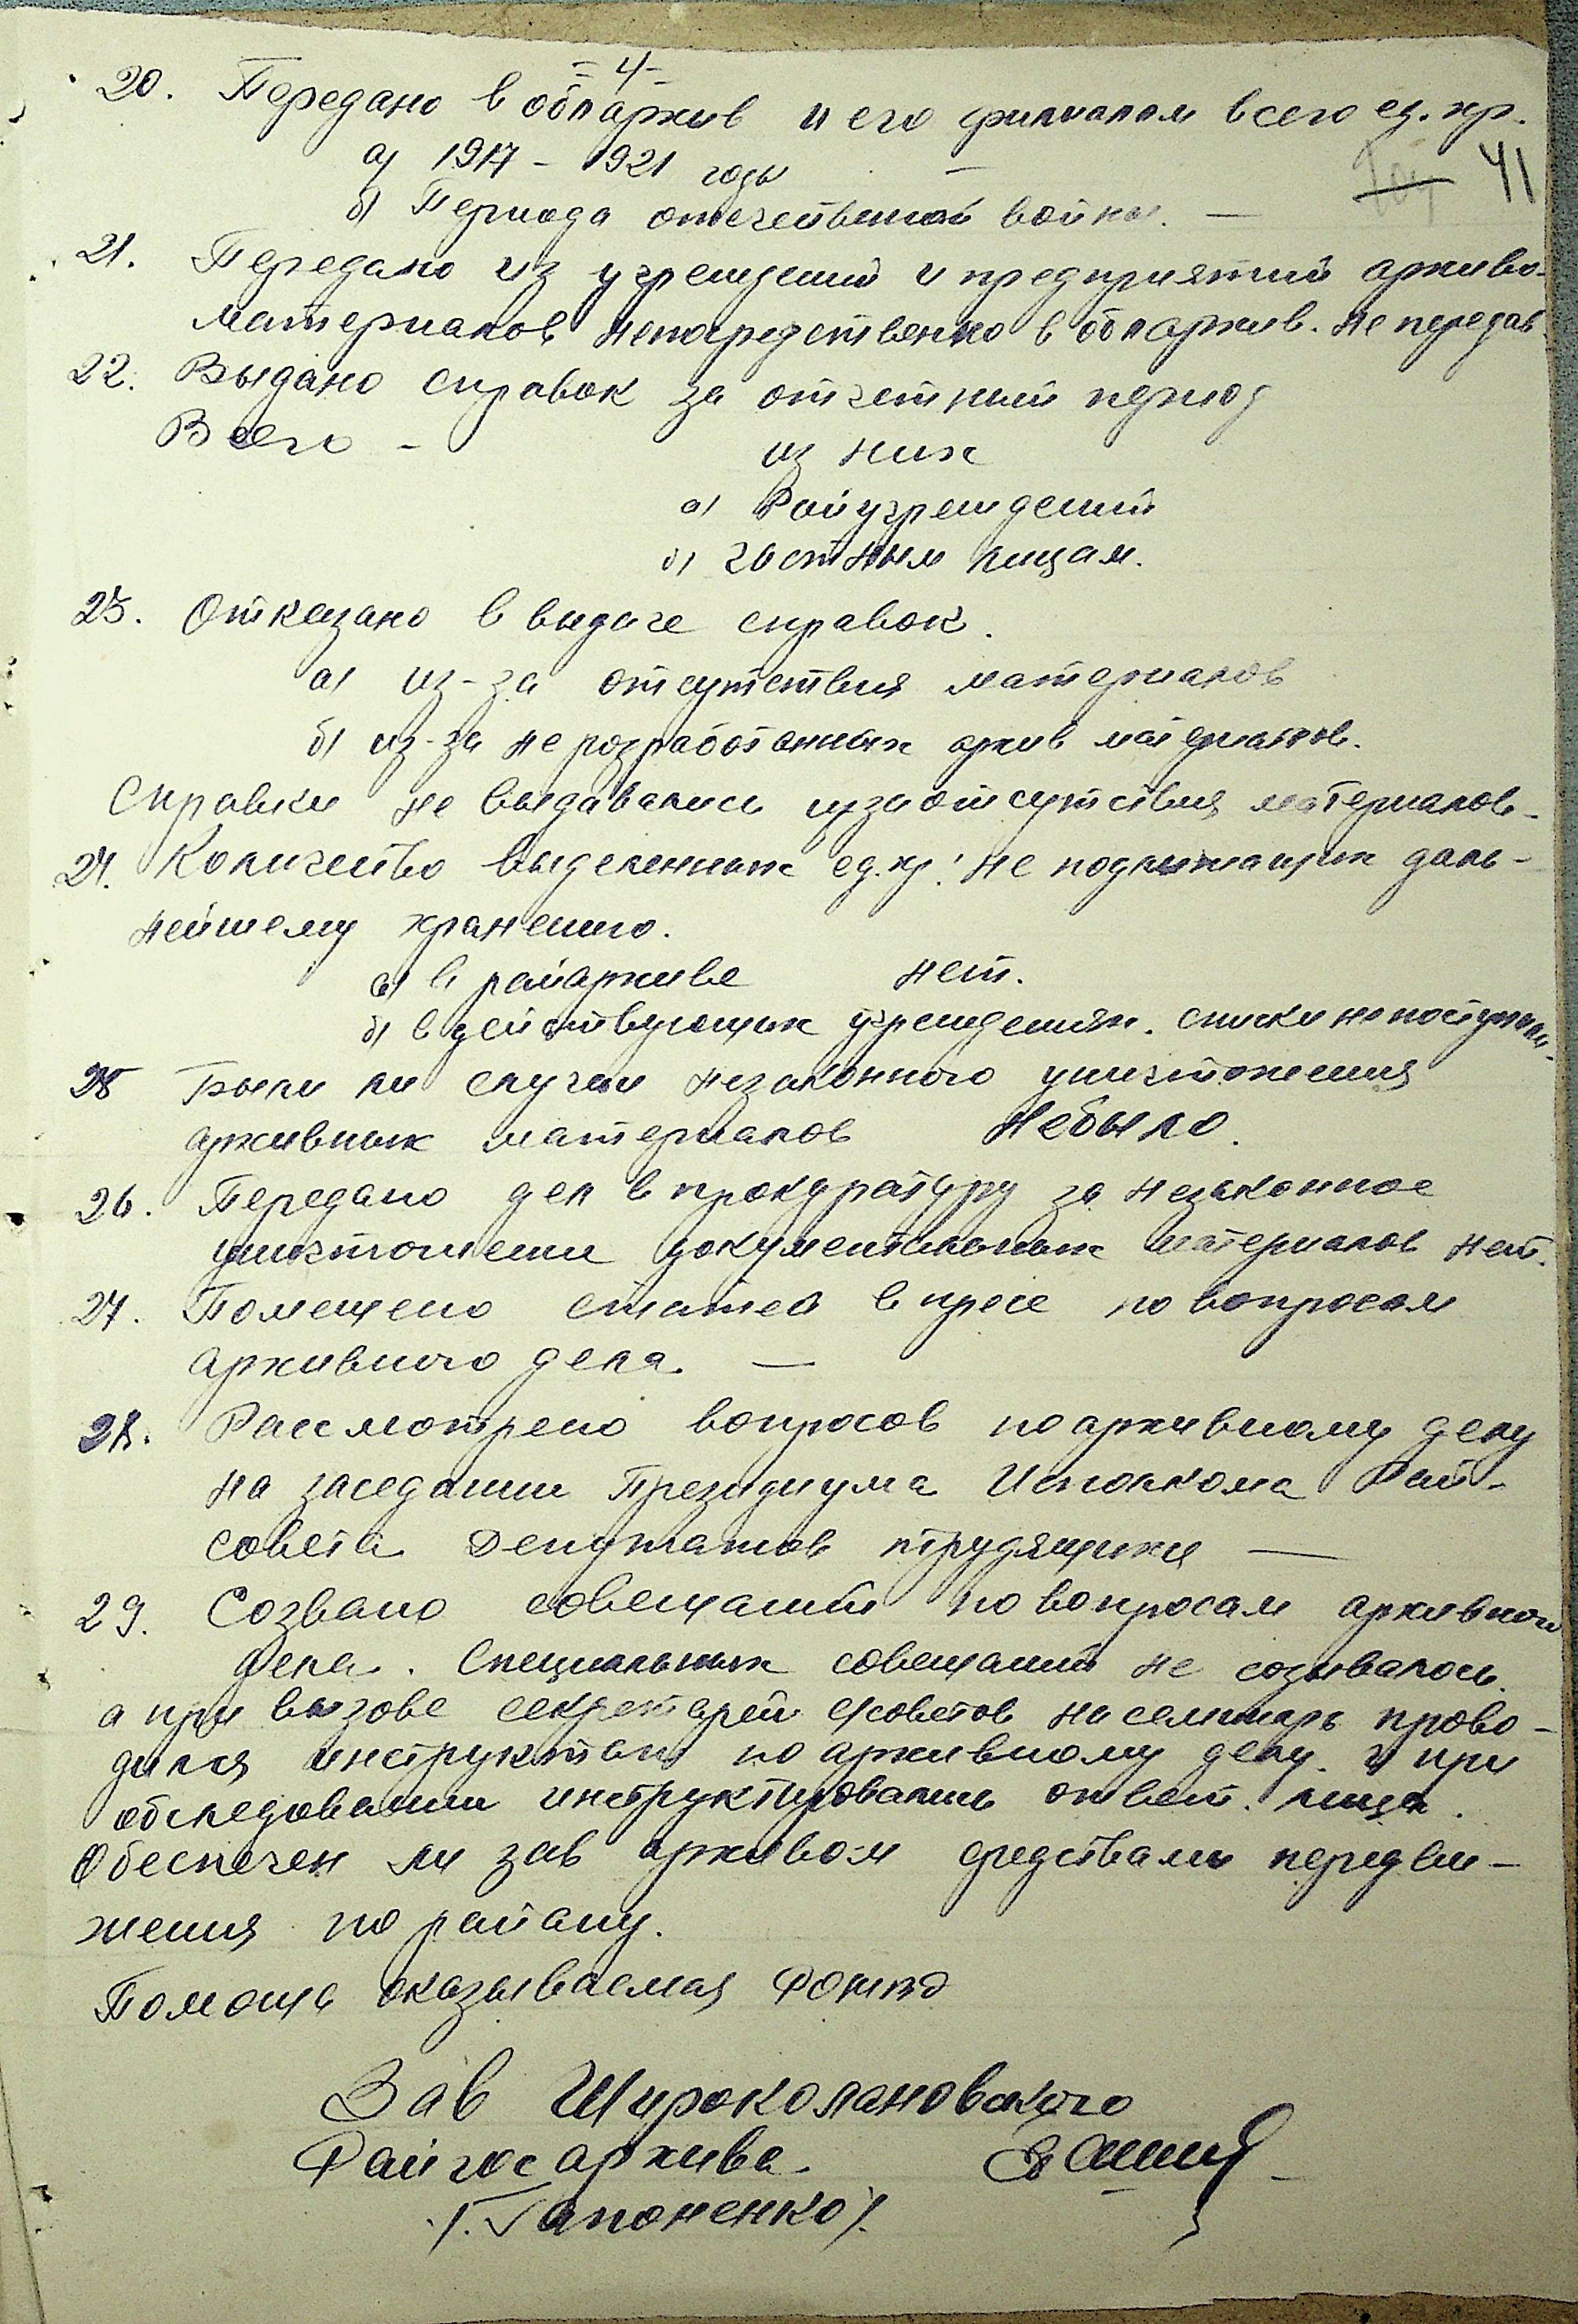 - 4 -
20. Передано в облархив и его филиалам всего ед. хр.
41
а) 1917 - 1921 годы —
б) Периода отечественной войны. —
21. Передано из учреждений и предприятий архиво-
материалов непосредственно в облархив. не передав.
22. Выдано справок за отчетный период
Всего -
из них
а) Райучреждений
б) частным лицам.
23. Отказано в выдаче справок.
а) из-за отсутствия материалов
б) из-за не розработанных архив материалов.
Справки не выдавались изза отсутствия материалов-
24. Количество выделенных ед.хр. не подлежащих даль-
нейшему хранению.
а) в райархиве нет.
б) в действующих учреждениях. списки не поступали-
25 Были ли случаи незаконного уничтожения
архивных материалов Небыло.
26. Передано дел в прокуратуру за незаконное
уничтожении документальных материалов нет.
27. Помещено статей в пресе по вопросам
архивного дела. —
28. Рассмотрено вопросов по архивному делу
на заседании Президиума Исполкома Рай-
совета Депутатов трудящихся —
29. Созвано совещаний по вопросам архивного
дела. Специальных совещаний не созывалось.
а при вызове секретарей с/советов на семинарь прово-
дился инструктаж по архивному делу. и при
обследовании инструктировались ответ. лица.
Обеспечен ли зав архивом средствами передви-
жения по району.
Помощь оказываемая
Зав Широколановского
Райгосархива.
/. Гапоненко /.